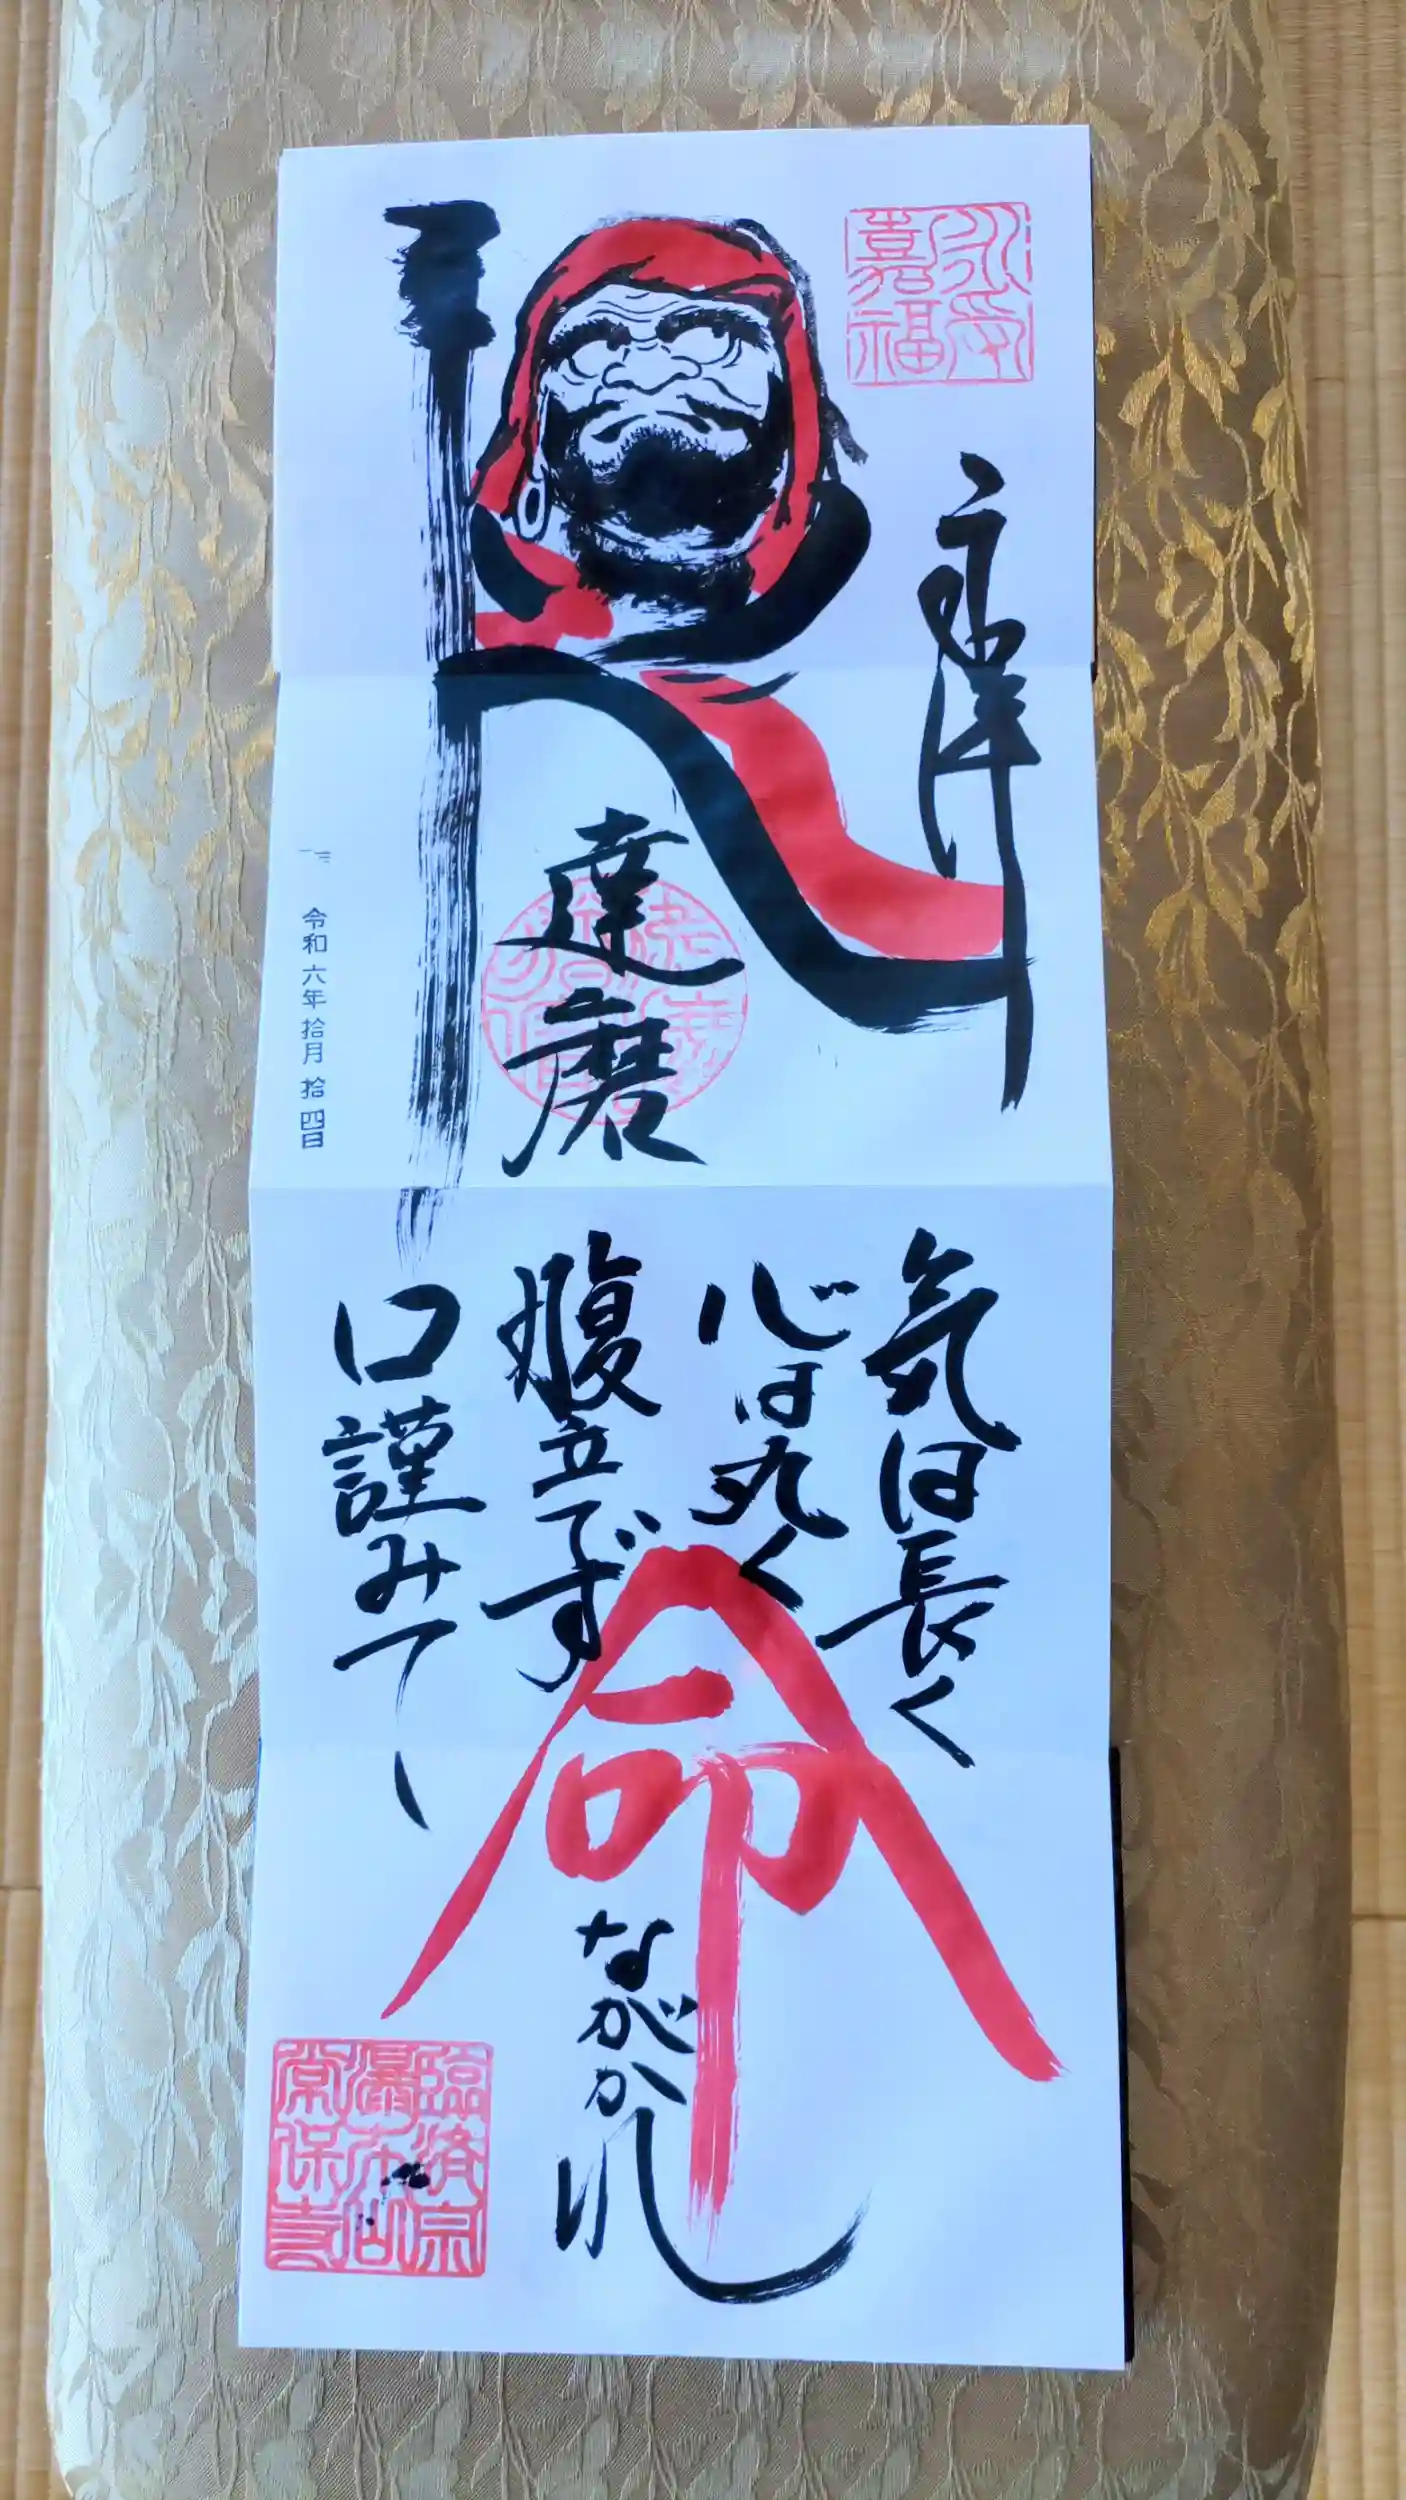 永受嘉福
奉拝
達磨
令和六年拾月拾四日
気は長く
心は丸く
腹立てず
口謹みて
命
ながかれ
臨済宗
瀑布山
常保寺